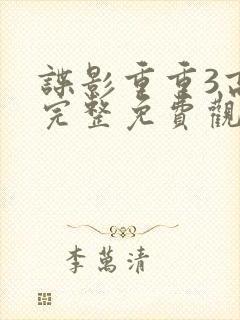 諜影重重3高
完整免費觀
李萬清